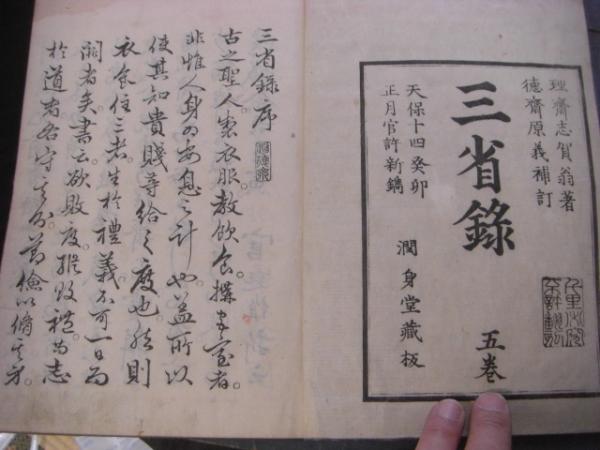 理齋志賀翁著
德齋原義補訂
三省錄
五巻
天保十四癸卯
正月官許新鐫
潤身堂藏板
三省錄序
古之聖人製衣服。教飲食。搆宮室者。
非惟人身為安息之計也。蓋所以
使其知貴賤等給之度也。然則
衣食住三者。生於禮義。不可一日而
闕者矣。書云欲敗度。縱敗禮。苟志
於道者。各守其分。節儉以脩其身。